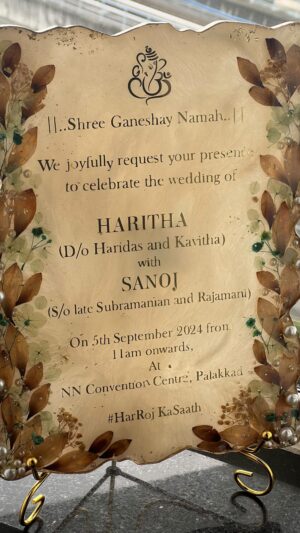 ||..Shree Ganeshay Namah..||
We joyfully request your presence
to celebrate the wedding of
HARITHA
(D/o Haridas and Kavitha)
with
SANOJ
(S/o late Subramanian and Rajamani)
On 5th September 2024 from
11am onwards,
At
NN Convention Centre, Palakkad
#HarRoj KaSaath